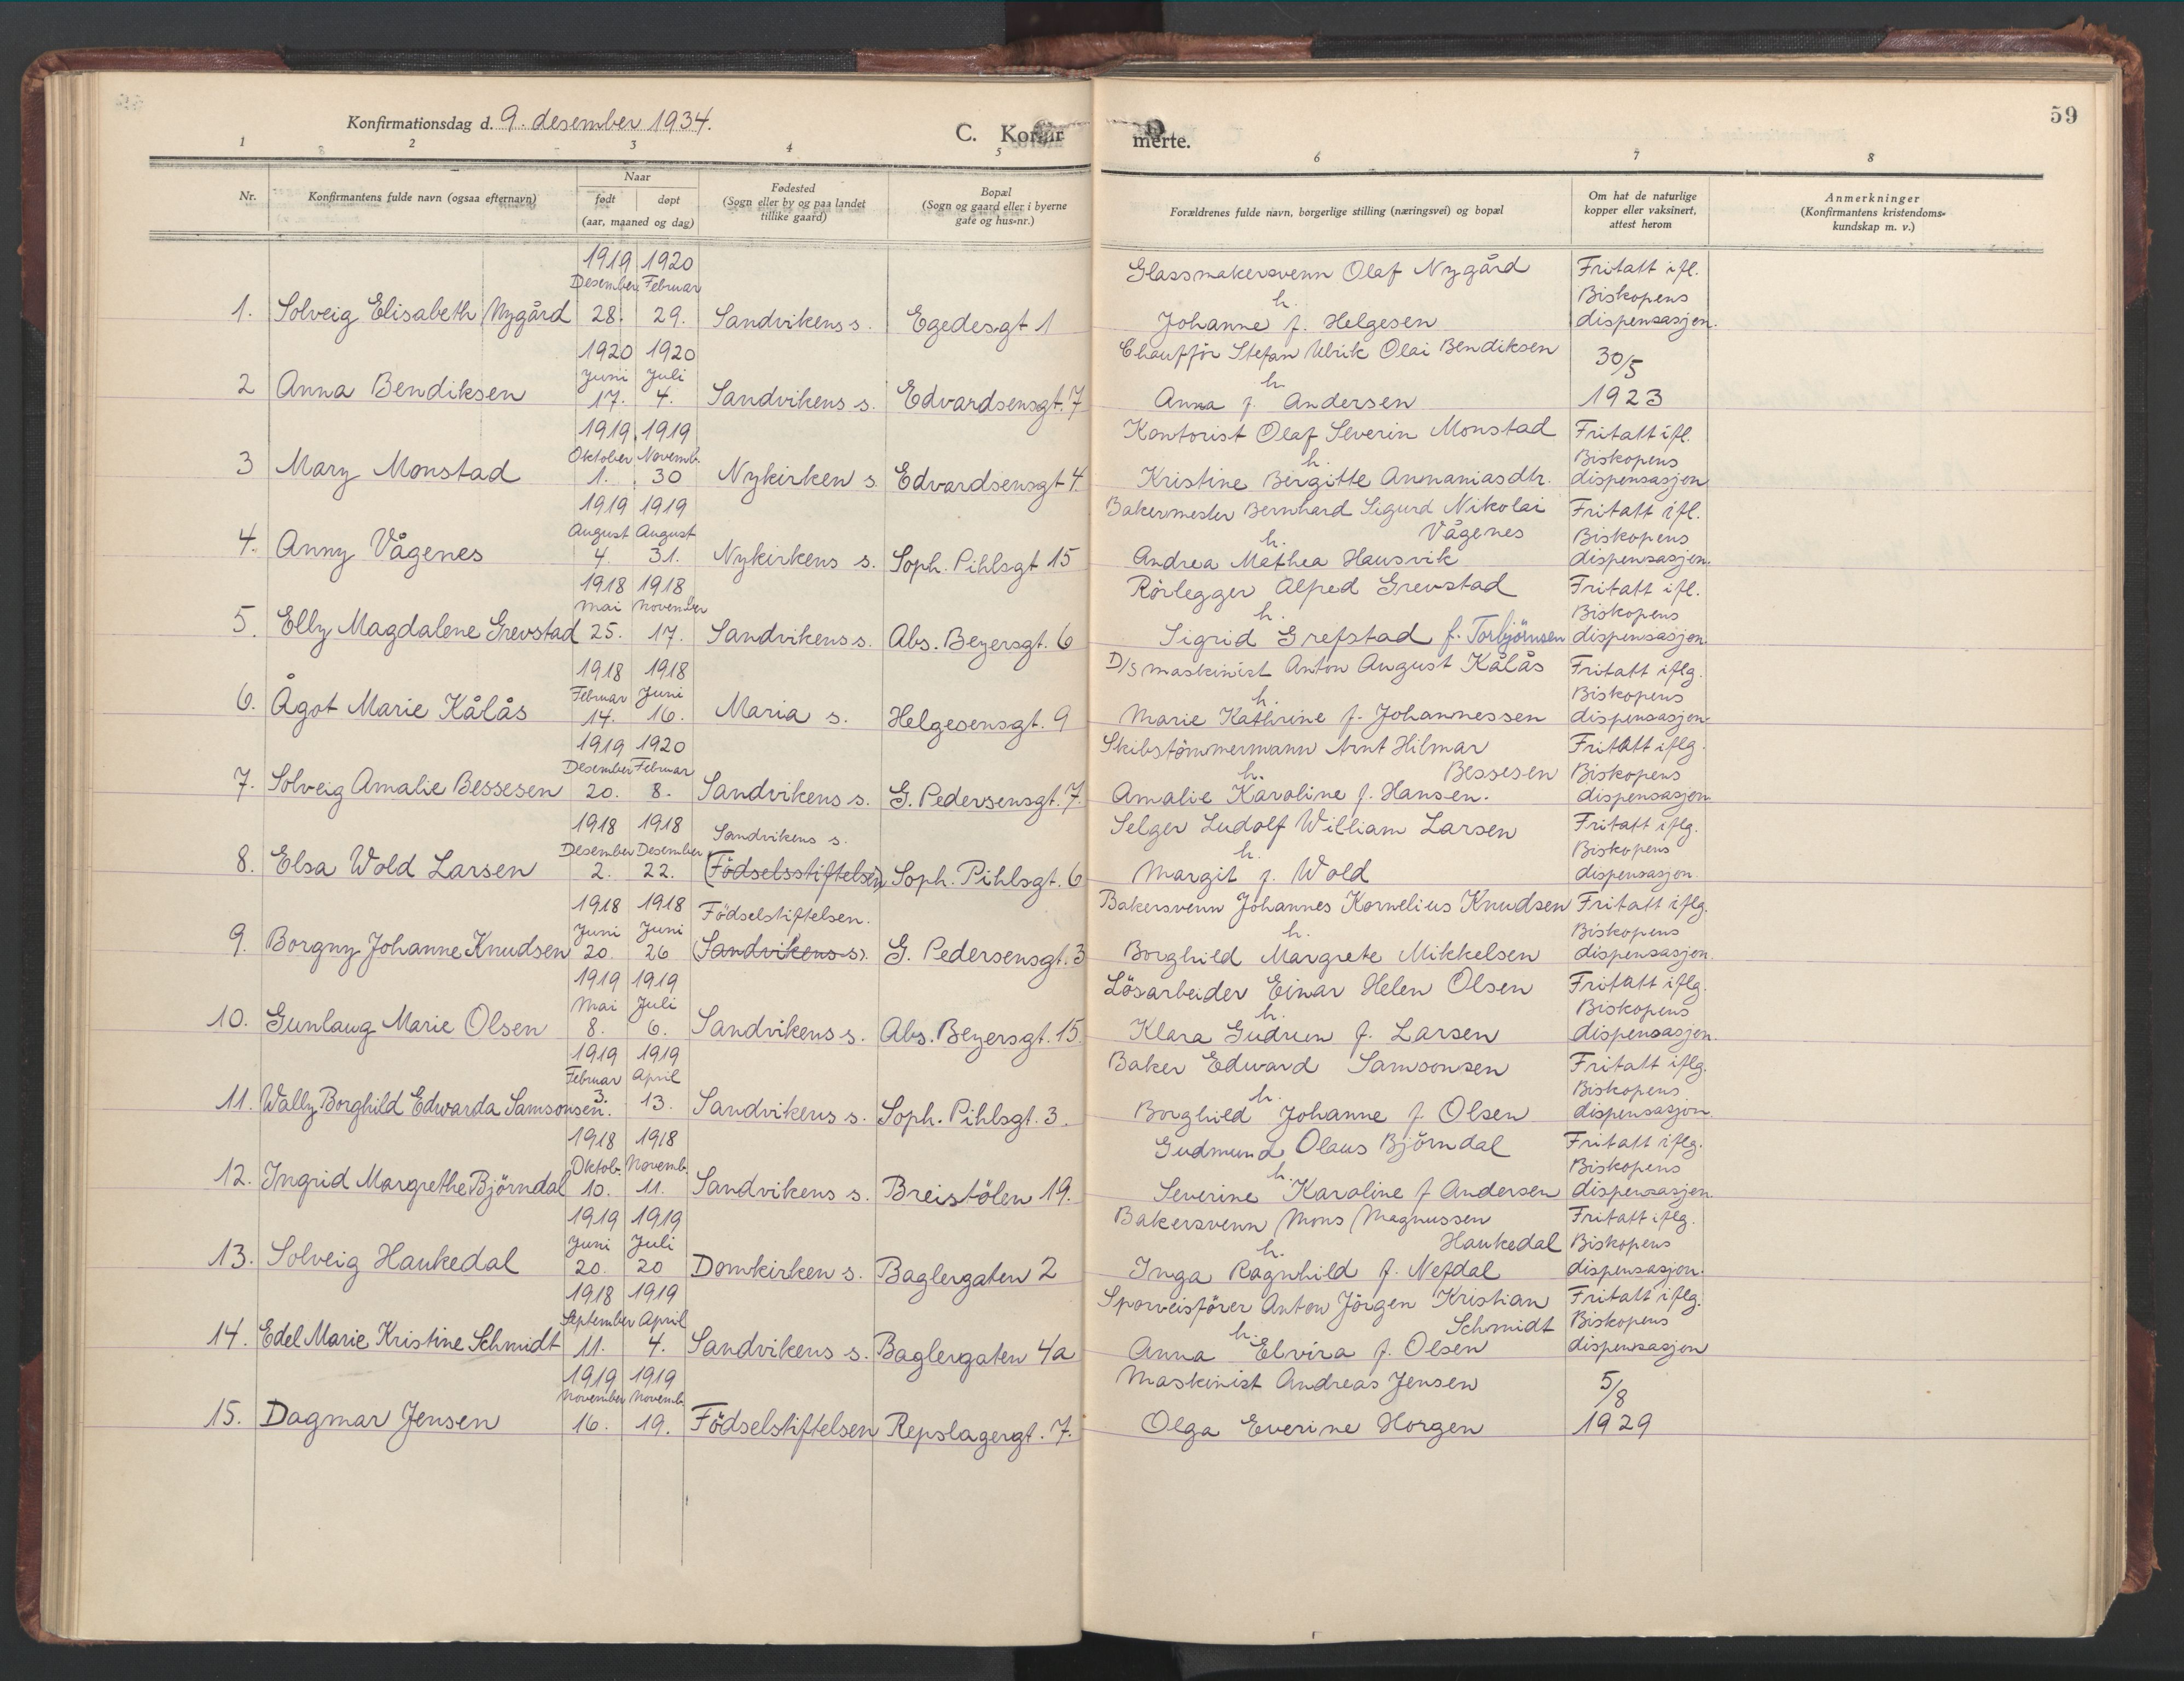 59
Konfirmationsdag d. 9. desember 1934.
C. Konfirmerte.
1 2 3 4 5 6 7 8
Nr.
Konfirmantens fulde navn (ogsaa efternavn)
Naar
født døpt
(aar, maaned og dag)
Fødested
(Sogn eller by og paa landet
tillike gaard)
Bopæl
(Sogn og gaard eller i byerne
gate og hus-nr.)
Forældrenes fulde navn, borgerlige stilling (næringsvei) og bopæl
Om hat de naturlige
kopper eller vaksinert,
attest herom
Anmerkninger
(Konfirmantens kristendoms-
kundskap m. v.)
1919 1920 Glassmakersvenn Olaf Nygård Fritatt ifl.
Desember Februar h. Biskopens
1. Solveig Elisabeth Nygård 28. 29. Sandvikens s. Egedesgt 1 Johanne f. Helgesen dispensasjon.
1920 1920 Chauffør Stefan Ulrik Olai Bendiksen 30/5
Juni Juli h.
2 Anna Bendiksen 17. 4. Sandvikens s. Edvardsensgt. 7 Anna f. Andersen 1923
1919 1919 Kontorist Olaf Severin Monstad Fritatt ifl.
Oktober Novemb. h. Biskopens
3 Mary Monstad 1. 30 Nykirken s. Edvardsensgt 4. Kristine Birgitte Annaniasdtr. dispensasjon
1919 1919 Bakermester Bernhard Sigurd Nikolai Fritatt ifl.
August August h. Vågenes Biskopens
4. Anny Vågenes 4. 31. Nykirkens s. Soph. Pihlsgt 15 Andrea Mathea Hausvik dispensasjon.
1918 1918 Rörlegger Alfred Grevstad Fritatt ifl.
Mai November h. Biskopens
5. Elly Magdalene Grevstad 25. 17. Sandvikens s. Abs. Beyersgt. 6 Sigrid Grefstad f. Torbjörnsen dispensasjon.
1918 1918 D/S maskinist Anton August Kålås Fritatt iflg.
Februar Juni h. Biskopens
6. Ågot Marie Kålås 14. 16. Maria s. Helgesensgt. 9 Marie Kathrine f. Johannessen dispensasjon.
1919 1920 Skibstömmermann Arnt Hilmar Fritatt iflg.
Desember Februar h. Bessesen Biskopens
7. Solveig Amalie Bessesen 20. 8. Sandvikens s. G. Pedersensgt. 7. Amalie Karoline f. Hansen. dispensasjon.
1918 1918 Sandvikens s. Selger Ludolf William Larsen Fritatt iflg.
Desember Desember h. Biskopens
8. Elsa Wold Larsen 2. 22. (Födselsstiftelsen) Soph. Pihlsgt. 6 Margit f. Wold dispensasjon.
1918 1918 Födselstiftelsen. Bakersvenn Johannes Kornelius Knudsen Fritatt iflg.
Juni Juni h. Biskopens
9. Borgny Johanne Knudsen 20. 26 (Sandvikens s). G. Pedersensgt. 3 Borghild Margrete Mikkelsen dispensasjon.
1919 1919 Lösarbeider Einar Helen Olsen Fritatt iflg.
Mai Juli h. Biskopens
10. Gunlaug Marie Olsen 8. 6. Sandvikens s. Abs. Beyersgt. 15. Klara Gudrun f. Larsen dispensasjon.
1919 1919 Baker Edward Samsonsen Fritatt iflg.
Februar April h. Biskopens
11. Wally Borghild Edwarda Samsonsen. 3. 13. Sandvikens s. Soph. Pihlsgt. 3. Borghild Johanne f. Olsen dispensasjon
1918 1918 Gudmund Olaus Björndal Fritatt iflg.
Oktob. Novemb. h. Biskopens
12. Ingrid Margrethe Björndal 10. 11. Sandvikens s. Breistölen 19. Severine Karoline f Andersen dispensasjon.
1919 1919 Bakersvenn Mons Magnussen Fritatt iflg.
Juni Juli h. Haukedal Biskopens
13. Solveig Haukedal 20. 20 Domkirken s. Baglergaten 2 Inga Ragnhild f. Nefdal dispensasjon.
1918 1919 Sporveisförer Anton Jörgen Kristian Fritatt iflg.
September April h. Schmidt Biskopens
14. Edel Marie Kristine Schmidt 11. 4. Sandvikens s. Baglergaten 4a Anna Elvira f. Olsen dispensasjon
1919 1919 Maskinist Andreas Jensen 5/8
November Novemb.
15. Dagmar Jensen 16. 19. Födselstiftelsen Repslagergt. 7. Olga Everine Horgen 1929